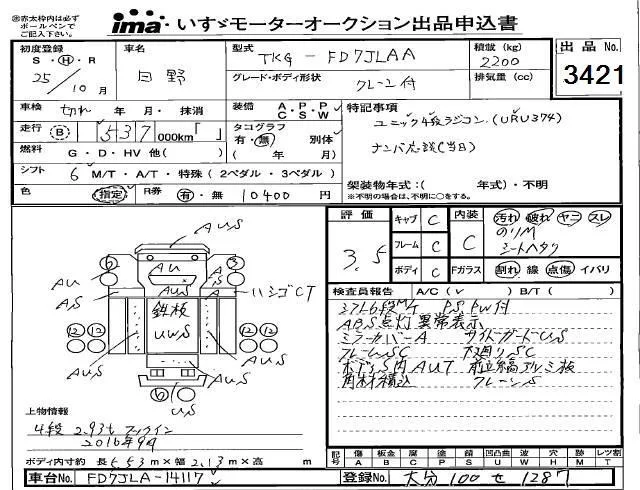 ※赤太枠内は必ず
ボールペンで
ご記入下さい。
ima いすゞモーターオークション出品申込書
初度登録
S・H・R
25年 10月
車名
日野
型式
TKG-FD7JLAA
グレード・ボディ形状
クレーン付
積載 (kg)
2200
排気量 (cc)
出品 No.
3421
車検 切れ 年 月・抹消
装備 A・P・P C・S・W
特記事項
ユニック4段ラジコン(URU374)
走行 B 537 000km「 」
タコグラフ 有・無 別体
(年 月)
ナンバ応談(当日)
燃料 G・D・HV 他( )
シフト 6 M/T・A/T・特殊(2ペダル・3ペダル)
架装物年式:( 年式)・不明
※不明の場合は、不明に○をする。
色 (指定) R券 有・無 10400円
評価
3.5
キャブ C
フレーム C
ボディ C
内装
C
汚れ 破れ ヤニ スレ
のリM
シートヘタリ
Fガラス 割れ 線 点傷 イバリ
検査員報告 A/C(v) B/T( )
シフト6段M/T P.S. P.W付
ABS点灯異常表示
ミラーカバーA サイドガードUS
フレームSC 下廻りSC
ボデーS内AUT 前立縞アルミ板
角材積込 クレーンS
AUS
6
3
AU
AU
AS
AUS
A
ハシゴCT
鉄板
UWS
12 12
12 12
AUS
AUS
AUS
AUS
6
US
上物情報
4段 2.93t フックイン
2016年9月
ボディ内寸約 長5.53m×幅2.13m×高 m
記号 傷A 板金B 腐C 塗P 錆S 凹凸曲U 波W 穴H 跡M レツ割T
車台No. FD7JLA-14117
登録No. 大分 100 せ 1287